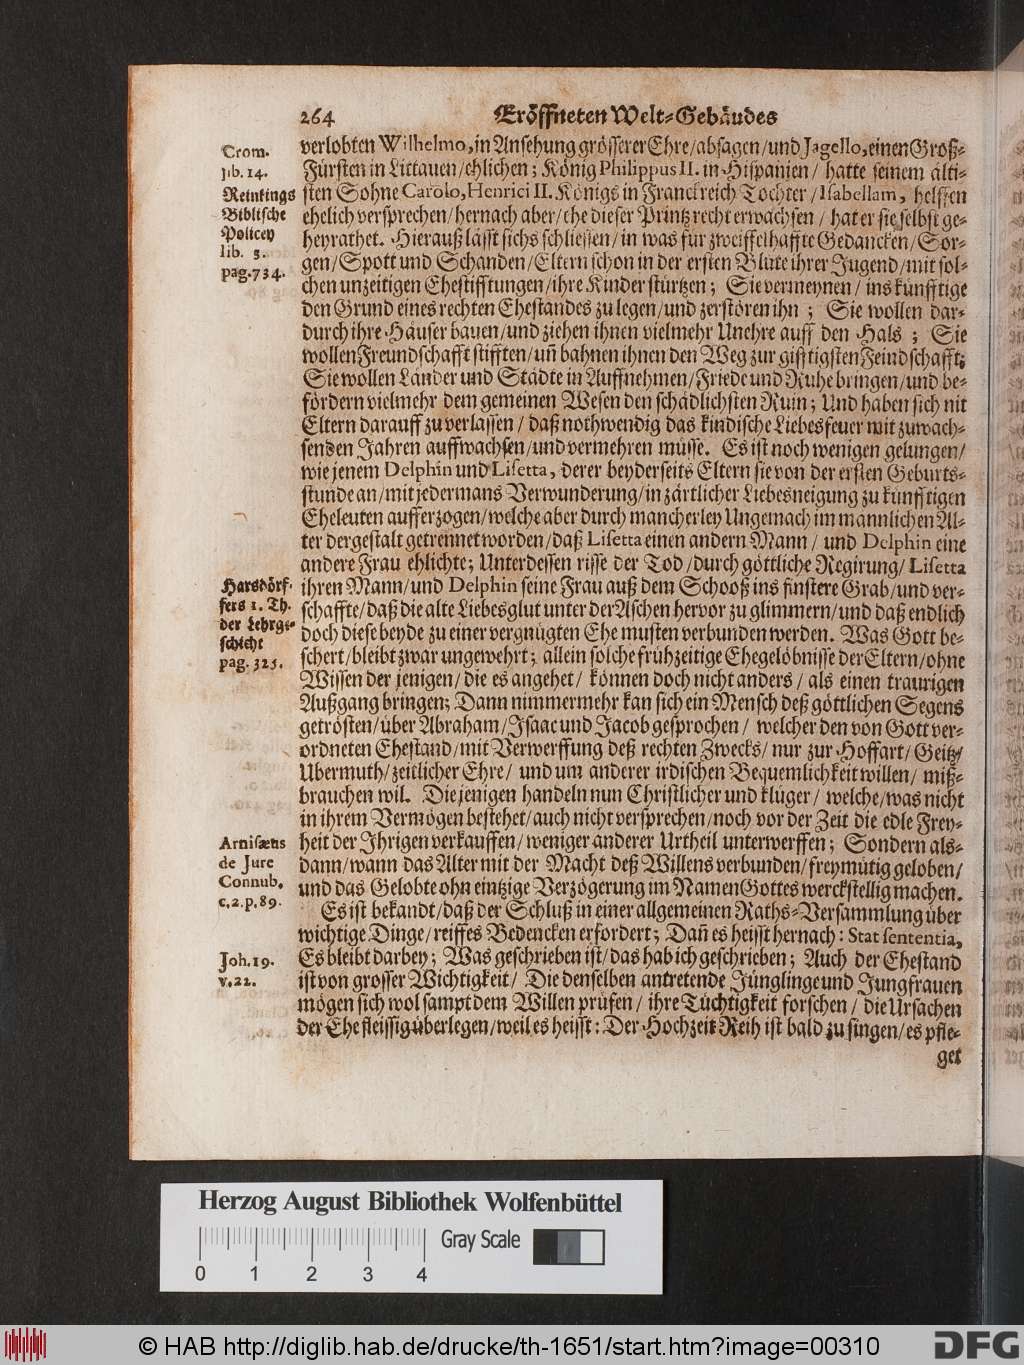 264 Eröffneten Welt-Gebäudes
Crom.
lib. 14.
Reinkings
Biblische
Policey
lib. 3.
pag. 734.
verlobten Wilhelmo, in Ansehung grösserer Ehre/absagen/und Jagello, einen Groß-
Fürsten in Littauen/ehlichen; König Philippus II. in Hispanien/ hatte seinem älti-
sten Sohne Carolo, Henrici II. Königs in Franckreich Tochter/ Isabellam, helffen
ehelich versprechen/hernach aber/ehe dieser Printz recht erwachsen/ hat er sie selbst ge-
heyrathet. Hierauß lässt sichs schliessen/in was für zweiffelhaffte Gedancken/Sor-
gen/Spott und Schanden/Eltern schon in der ersten Blüte ihrer Jugend/mit sol-
chen unzeitigen Ehestifftungen/ihre Kinder stürtzen; Sie vermeynen/ ins künfftige
den Grund eines rechten Ehestandes zu legen/und zerstören ihn; Sie wollen dar-
durch ihre Häuser bauen/und ziehen ihnen vielmehr Unehre auff den Hals; Sie
wollen Freundschafft stifften/uñ bahnen ihnen den Weg zur gifftigsten Feindschafft;
Sie wollen Länder und Städte in Auffnehmen/Friede und Ruhe bringen/und be-
fördern vielmehr dem gemeinen Wesen den schädlichsten Ruin; Und haben sich nit
Eltern darauff zu verlassen/ daß nothwendig das kindische Liebesfeuer mit zuwach-
senden Jahren auffwachsen/und vermehren müsse. Es ist noch wenigen gelungen/
wie jenem Delphin und Lisetta, derer beyderseits Eltern sie von der ersten Geburts-
stunde an/mit jedermans Verwunderung/in zärtlicher Liebesneigung zu künfftigen
Eheleuten aufferzogen/welche aber durch mancherley Ungemach im mannlichen Al-
ter dergestalt getrennet worden/daß Lisetta einen andern Mann/ und Delphin eine
andere Frau ehlichte; Unterdessen risse der Tod/durch göttliche Regirung/ Lisetta
ihren Mann/und Delphin seine Frau auß dem Schooß ins finstere Grab/und ver-
schaffte/daß die alte Liebesglut unter der Aschen hervor zu glimmern/und daß endlich
doch diese beyde zu einer vergnügten Ehe musten verbunden werden. Was Gott be-
schert/bleibt zwar ungewehrt; allein solche frühzeitige Ehegelöbnisse der Eltern/ohne
Wissen der jenigen/die es angehet/ können doch nicht anders/ als einen traurigen
Außgang bringen; Dann nimmermehr kan sich ein Mensch deß göttlichen Segens
getrösten/über Abraham/Isaac und Jacob gesprochen/ welcher den von Gott ver-
ordneten Ehestand/mit Verwerffung deß rechten Zwecks/ nur zur Hoffart/Geitz/
Ubermuth/zeitlicher Ehre/ und um anderer irdischen Bequemlichkeit willen/ miß-
brauchen wil. Die jenigen handeln nun Christlicher und klüger/ welche/was nicht
in ihrem Vermögen bestehet/auch nicht versprechen/noch vor der Zeit die edle Frey-
heit der Ihrigen verkauffen/weniger anderer Urtheil unterwerffen; Sondern als-
dann/wann das Alter mit der Macht deß Willens verbunden/freymütig geloben/
und das Gelobte ohn eintzige Verzögerung im Namen Gottes werckstellig machen.
Es ist bekandt/daß der Schluß in einer allgemeinen Raths-Versammlung über
wichtige Dinge/reiffes Bedencken erfordert; Dañ es heisst hernach: Stat sententia,
Es bleibt darbey; Was geschrieben ist/das hab ich geschrieben; Auch der Ehestand
ist von grosser Wichtigkeit/ Die denselben antretende Jünglinge und Jungfrauen
mögen sich wol sampt dem Willen prüfen/ ihre Tüchtigkeit forschen/ die Ursachen
der Ehe fleissig überlegen/weil es heisst: Der Hochzeit Reih ist bald zu singen/es pfle-
get
Harsdörf-
fers 1. Th.
der Lehrge-
schicht
pag. 325.
Arnisæus
de Jure
Connub.
c. 2. p. 89.
Joh. 19.
v. 22.
Herzog August Bibliothek Wolfenbüttel
Gray Scale
0 1 2 3 4
© HAB http://diglib.hab.de/drucke/th-1651/start.htm?image=00310
DFG